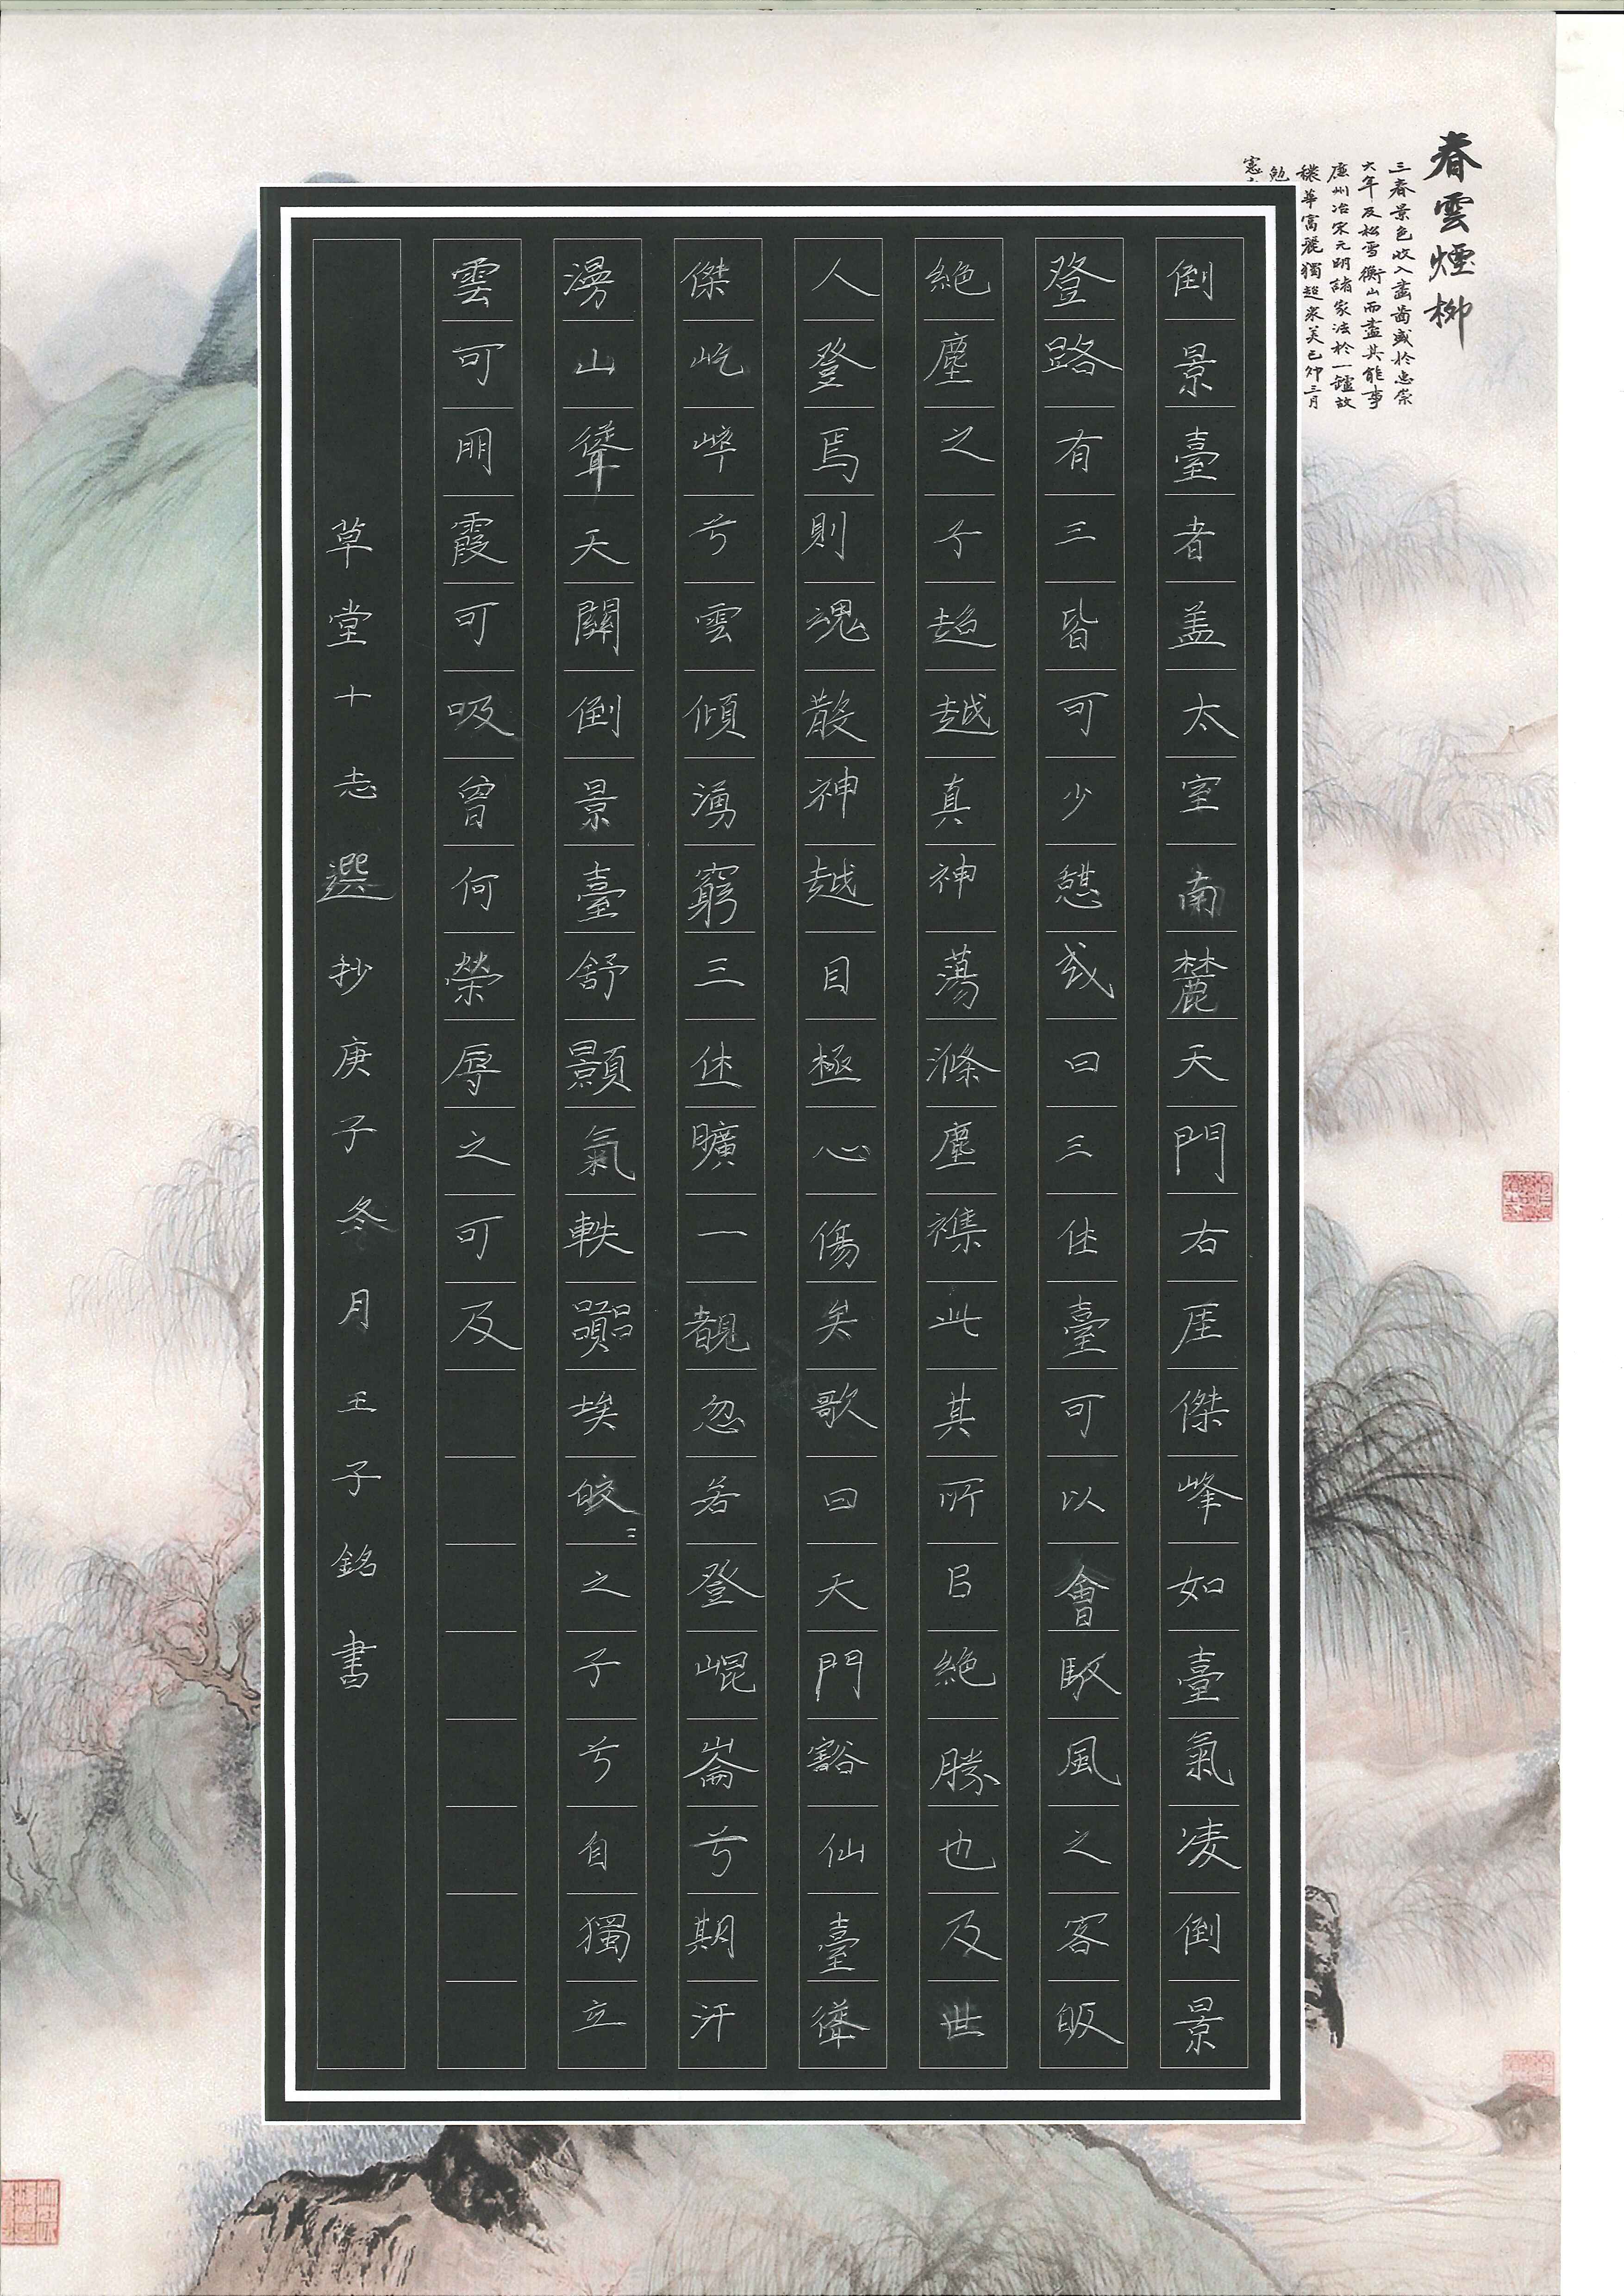 春雲煙柳
三春景色收入畫啚盛於惠崇
大年及松雪衡山而盡其能事
廉州冶宋元明諸家法於一罏故
穠華富麗獨超衆美己卯三月
勉
憲
倒景臺者盖太室南麓天門右厓傑峰如臺氣凌倒景
登路有三皆可少憇或曰三休臺可以會馭風之客皈
絶塵之子超越真神蕩滌塵襟此其所㠯絶勝也及世
人登焉則魂散神越目極心傷矣歌曰天門豁仙臺聳
傑屹崒兮雲傾湧窮三休曠一覩忽若登崐崙兮期汗
漫山聳天關倒景臺舒顥氣軼囂埃皎〻之子兮自獨立
雲可朋霞可吸曾何榮辱之可及
草堂十志選抄庚子冬月王子銘書